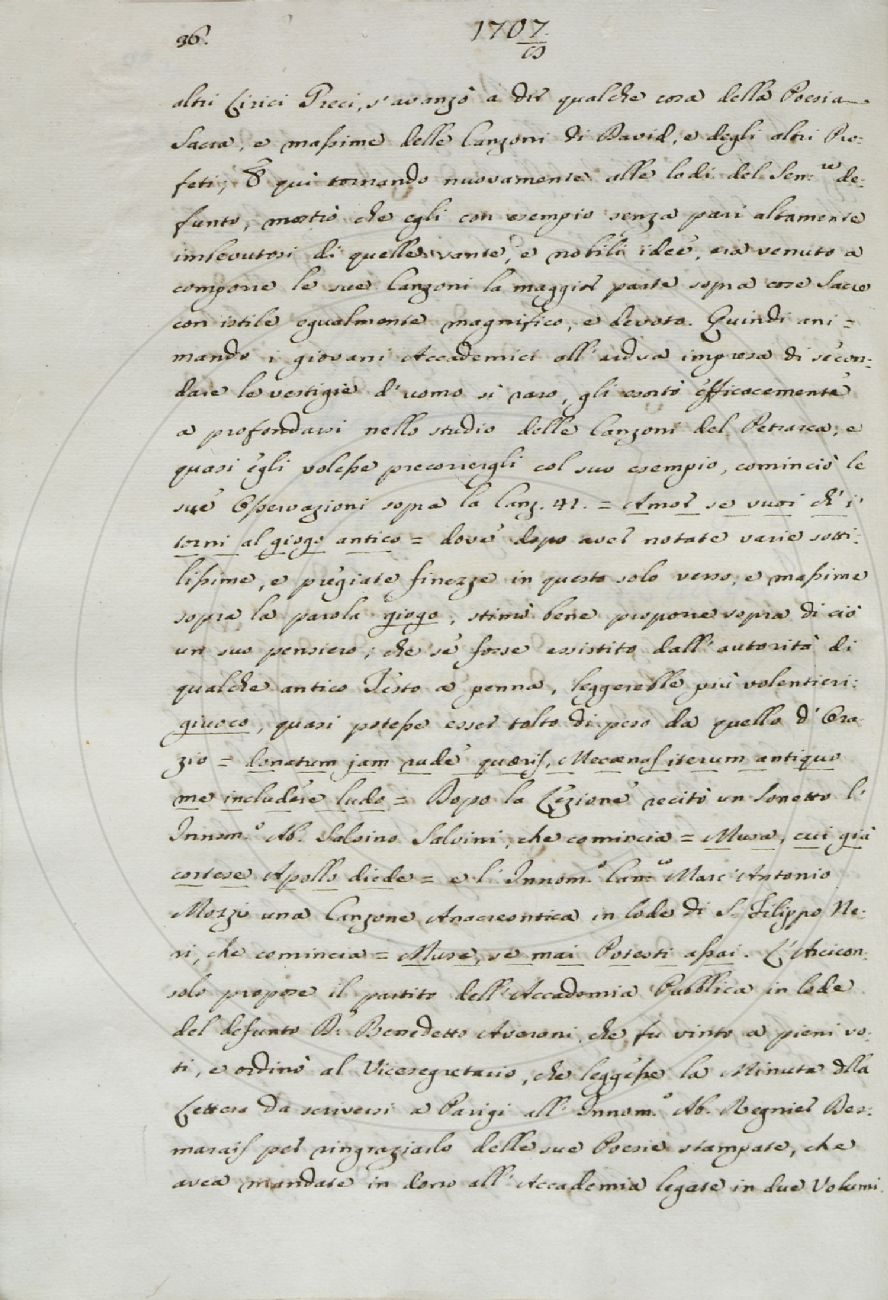 96.
1707/8
altri Lirici Greci, s'avanzò a dir qualche cosa della Poesia
Sacra, e massime delle Canzoni di David, e degli altri Pro-
feti; E qui tornando nuovamente alle lodi del Sen.re de-
funto, mostrò che egli con esempio senza pari altamente
imbevutosi di quelle sante, e nobili idee, era venuto a
comporre le sue Canzoni la maggior parte sopra cose Sacre
con istile egualmente magnifico, e devoto. Quindi ani=
mando i giovani Accademici all'ardua impresa di secon-
dare le vestigie d'uomo sì raro, gli esortò efficacemente
a profondarsi nello studio delle Canzoni del Petrarca; e
quasi egli volesse precorrergli col suo esempio, cominciò le
sue Osservazioni sopra la Canz. 41. = Amor se vuoi ch'i'
torni al giogo antico = dove dopo aver notate varie sotti-
lissime, e pregiate finezze in questo solo verso, e massime
sopra la parola giogo, stimò bene proporre sopra di ciò
un suo pensiero; che se fosse assistito dall'autorità di
qualche antico Testo a penna, leggerebbe più volentieri:
giuoco, quasi potesse esser tolto di peso da quello d'Ora-
zio = donatum jam rude quaeris, Mecaenas iterum antiquo
me includere ludo = Dopo la Lezione recitò un Sonetto l'
Innom.o Ab. Salvino Salvini, che comincia = Musa, cui già
cortese Apollo diede = e l'Innom.o Can.co Marc'Antonio
Mozzi una Canzone Anacreontica in lode di S. Filippo Ne-
ri, che comincia = Muse, se mai Potesti assai. L'Arcicon-
solo propose il partito dell'Accademia Pubblica in lode
del defunto D.r Benedetto Averoni, che fu vinto a pieni vo-
ti, e ordinò al Vicesegretario, che leggesse la Minuta della
Lettera da scriversi a Parigi all'Innom.o Ab. Regnier Des-
marais per ringraziarlo delle sue Poesie stampate, che
avea mandate in dono all'Accademia legate in due Volumi